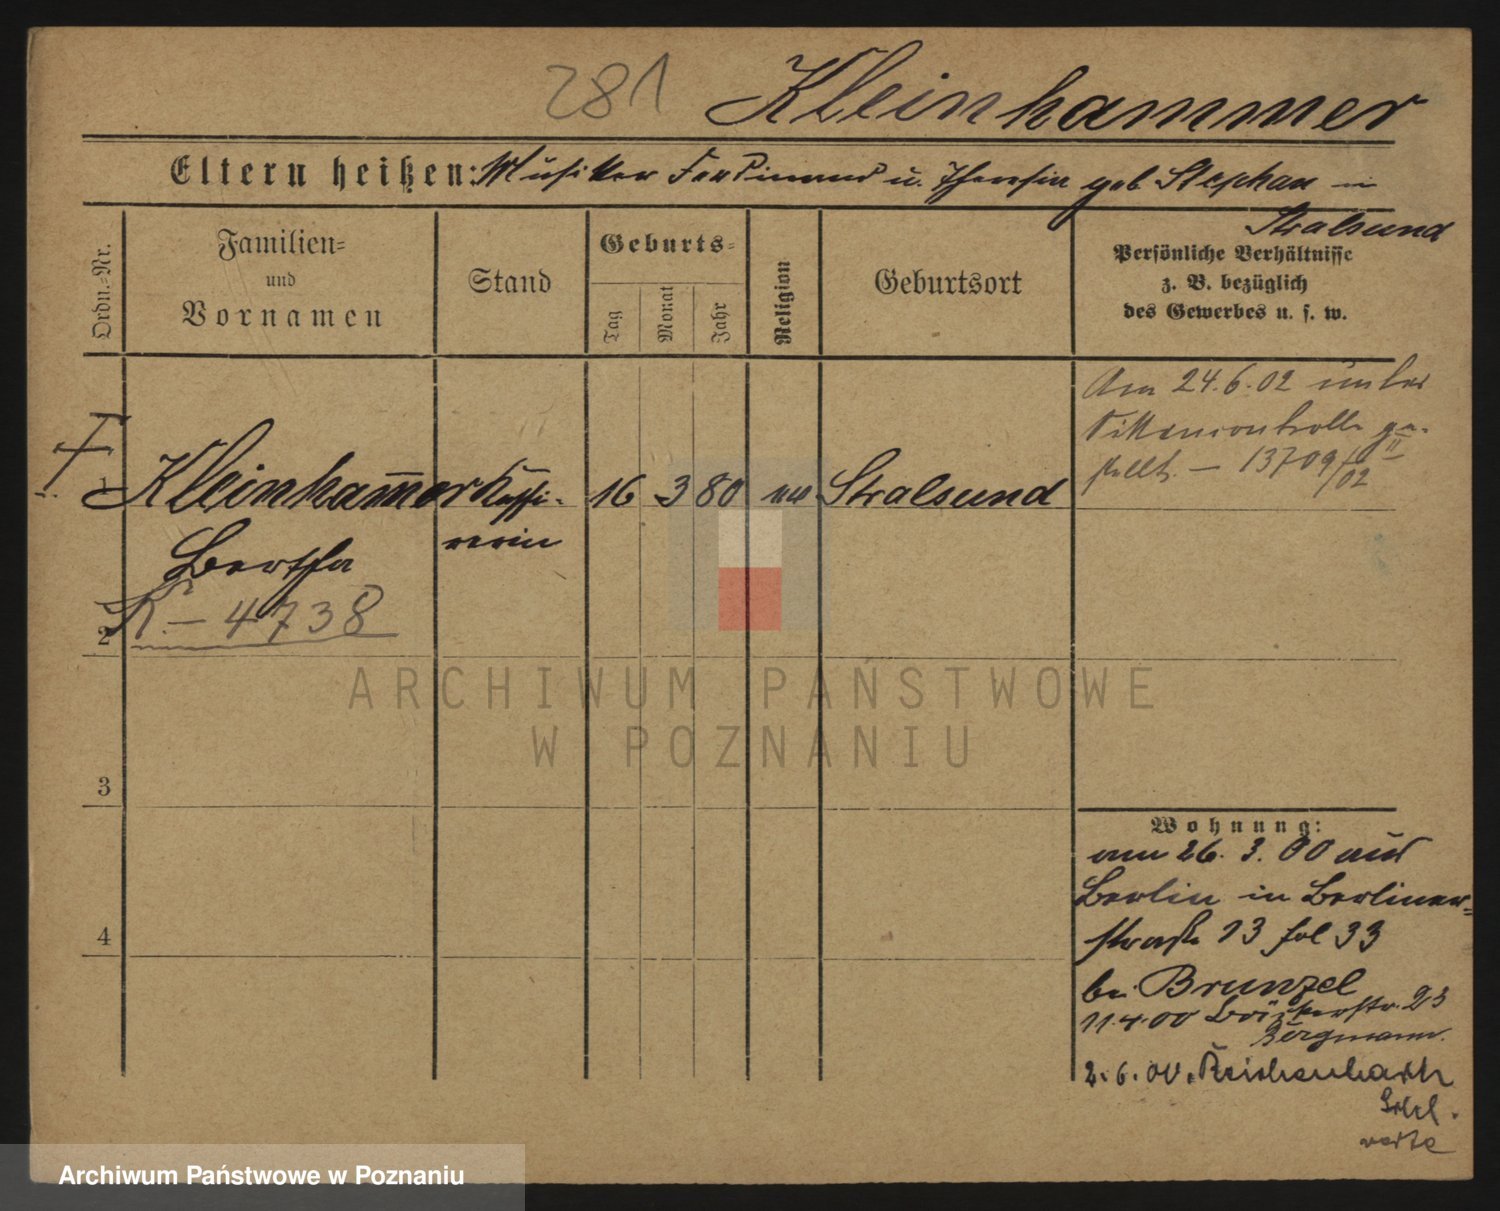 281 Kleinhammer
Eltern heißen: Musiker Ferdinand u. Theresia geb. Stephan in
Stralsund
Ordn.-Nr.
Familien-
und
Vornamen
Stand
Geburts-
Tag
Monat
Jahr
Religion
Geburtsort
Persönliche Verhältnisse
z. B. bezüglich
des Gewerbes u. s. w.
Am 24.6.02 unter
Sittencontrolle ge-
stellt. — 13709/02 II
1 Kleinham̅er Kassi- 16 3 80 Stralsund
Bertha rerin
K. — 4738
2
3
4
Wohnung:
am 26. 3. 00 aus
Berlin in Berliner-
straße 13 fol 33
bei Brunzel
11.4.00 23
Bergmann.
2.6.00. Reichenbach
Schl.
ARCHIWUM PAŃSTWOWE
W POZNANIU
Archiwum Państwowe w Poznaniu